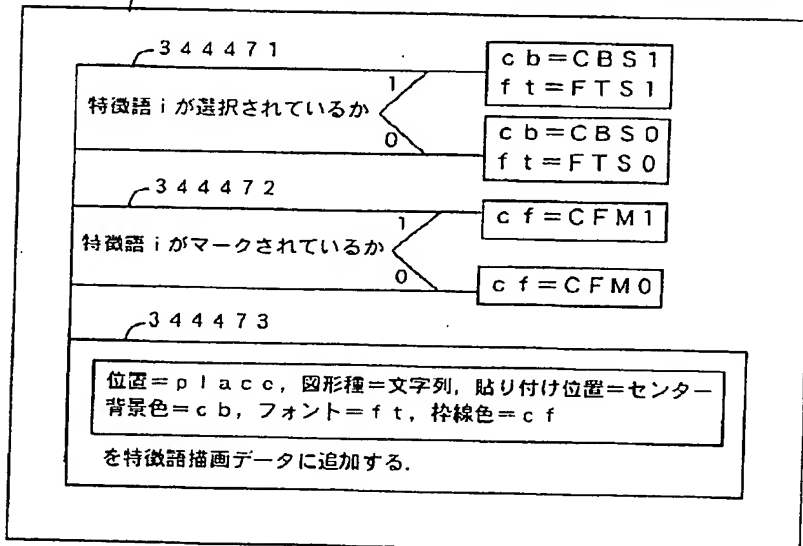 344471
特徴語iが選択されているか
1
cb=CBS1
ft=FTS1
0
cb=CBS0
ft=FTS0
344472
特徴語iがマークされているか
1
cf=CFM1
0
cf=CFM0
344473
位置=placc, 図形種=文字列, 貼り付け位置=センター
背景色=cb, フォント=ft, 枠線色=cf
を特徴語描画データに追加する.